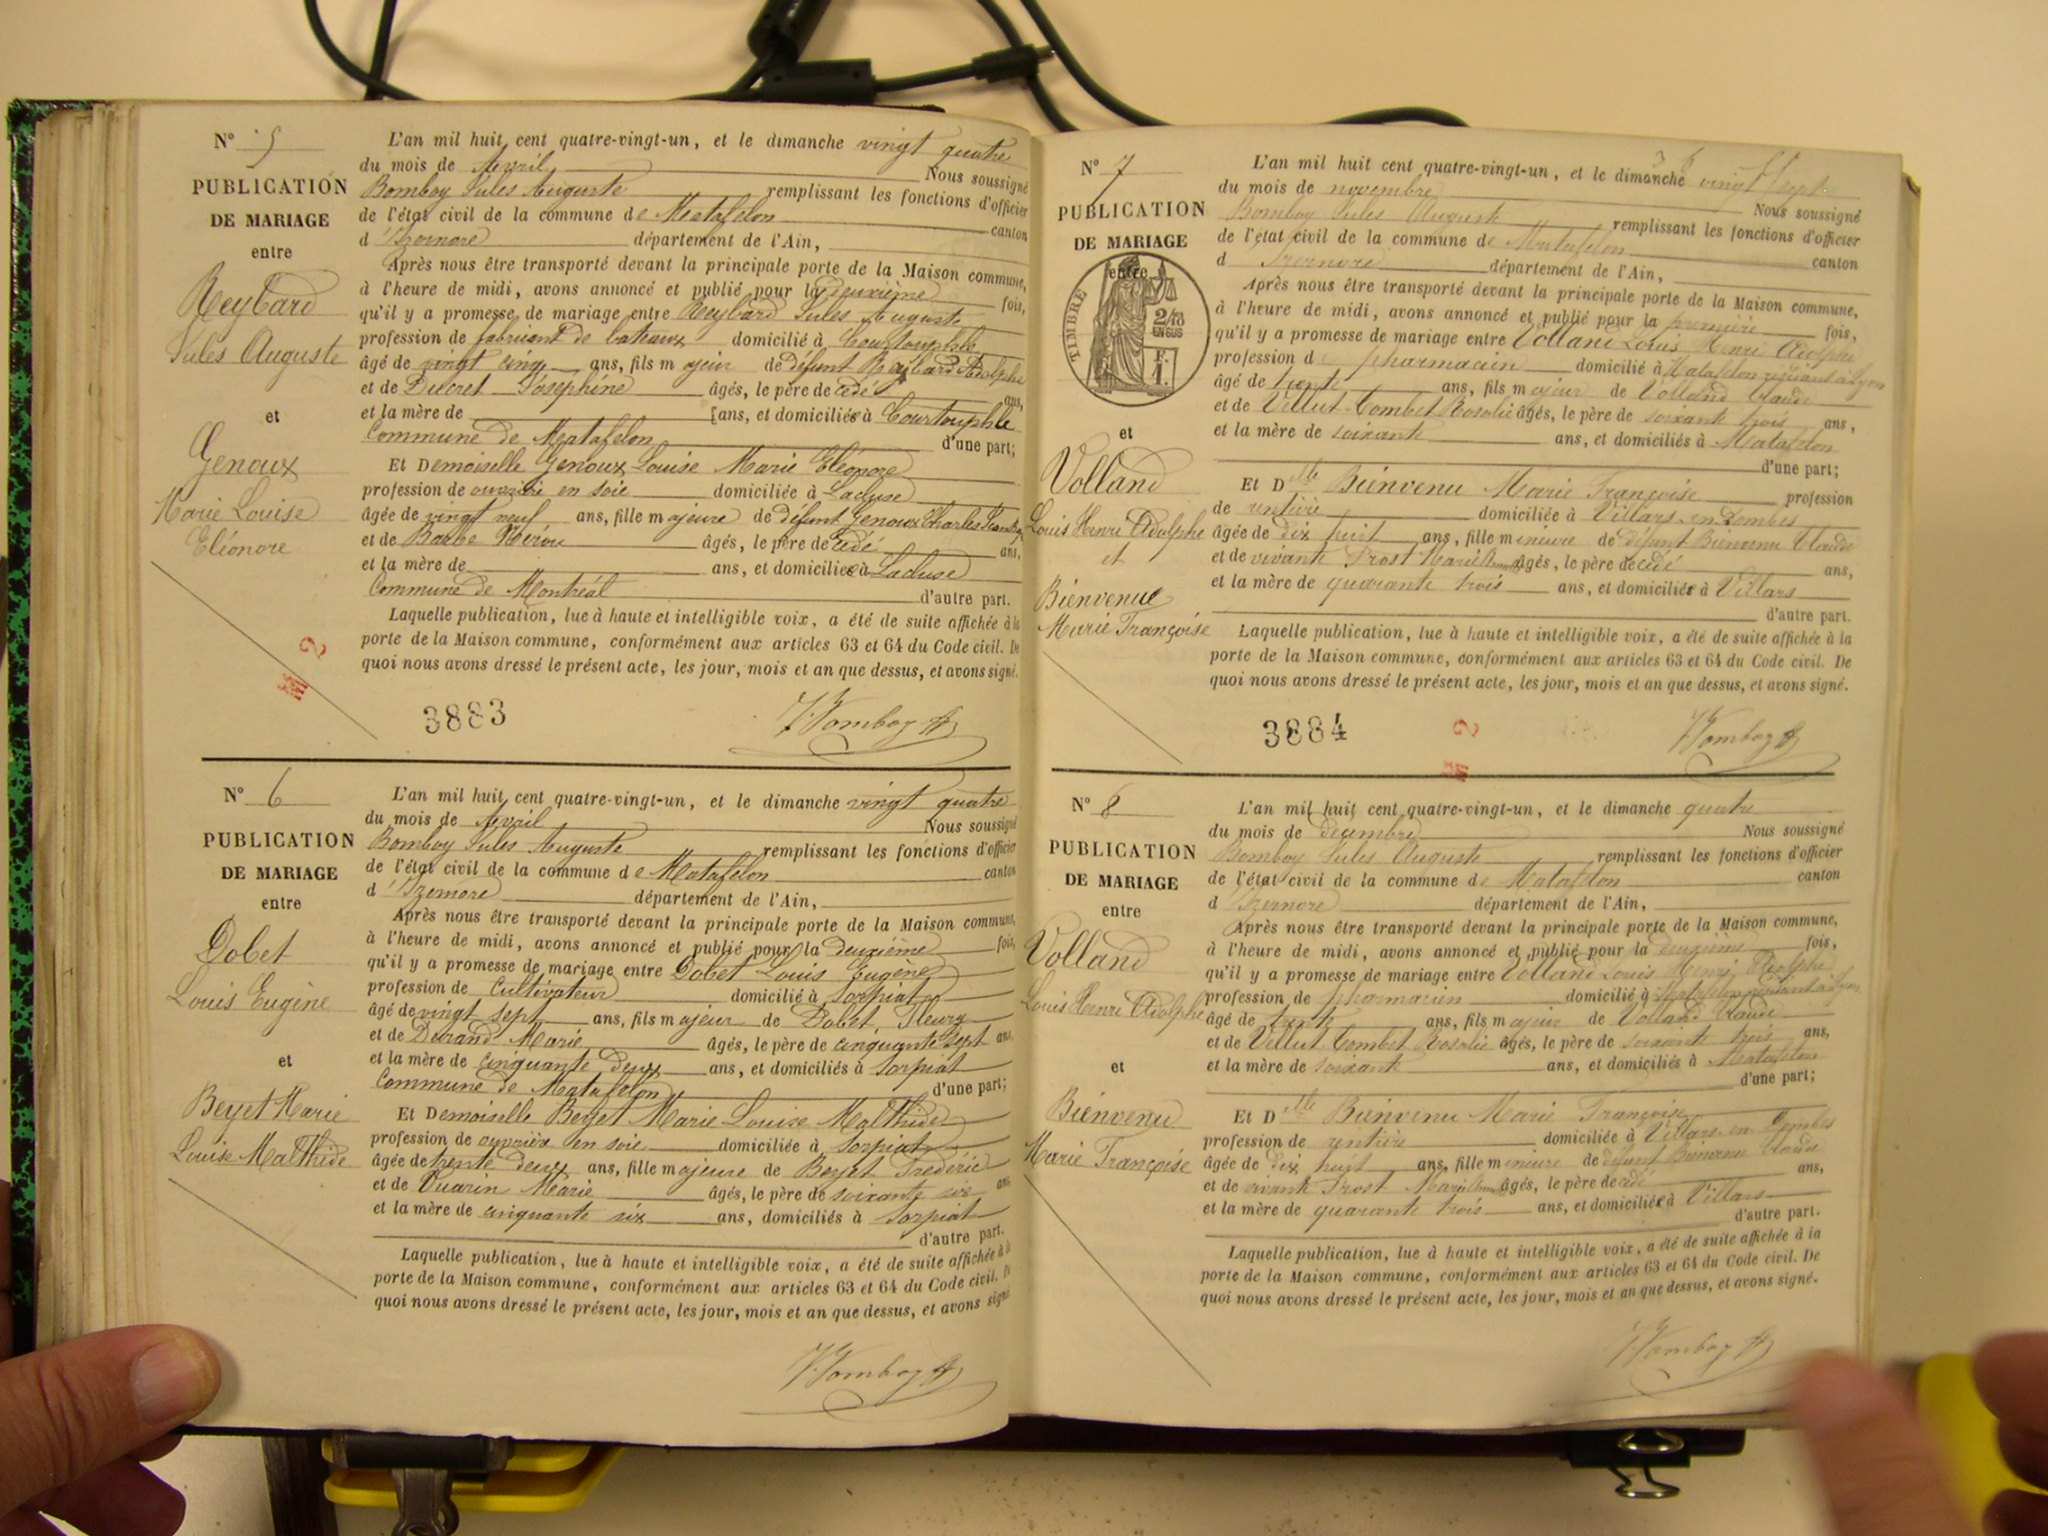 N° 5
PUBLICATION
DE MARIAGE
entre
Reybard
Jules Auguste
et
Genoux
Marie Louise
Eléonore
L'an mil huit cent quatre-vingt-un, et le dimanche vingt quatre
du mois de Avril Nous soussigné
Bomboy Jules Auguste remplissant les fonctions d'officier
de l'état civil de la commune de Matafelon canton
d'Izernore département de l'Ain,
Après nous être transporté devant la principale porte de la Maison commune,
à l'heure de midi, avons annoncé et publié pour la deuxième fois,
qu'il y a promesse de mariage entre Reybard Jules Auguste
profession de fabricant de bateaux domicilié à Courtouphle
âgé de vingt cinq ans, fils majeur de défunt Reybard Adolphe
et de Ducret Joséphine âgés, le père decédé ans,
et la mère de ans, et domiciliés à Courtouphle
Commune de Matafelon d'une part;
Et Demoiselle Genoux Louise Marie Eléonore
profession de ouvrière en soie domiciliée à Lacluse
âgée de vingt neuf ans, fille majeure de défunt Genoux Charles
et de Barbe âgés, le père decédé ans,
et la mère de ans, et domiciliée à Lacluse
Commune de Montréal d'autre part.
Laquelle publication, lue à haute et intelligible voix, a été de suite affichée à la
porte de la Maison commune, conformément aux articles 63 et 64 du Code civil. De
quoi nous avons dressé le présent acte, les jour, mois et an que dessus, et avons signé.
M 2
3883
J. Bomboy
N° 6
PUBLICATION
DE MARIAGE
entre
Dobet
Louis Eugène
et
Beyet Marie
Louise Malthide
L'an mil huit cent quatre-vingt-un, et le dimanche vingt quatre
du mois de Avril Nous soussigné
Bomboy Jules Auguste remplissant les fonctions d'officier
de l'état civil de la commune de Matafelon canton
d'Izernore département de l'Ain,
Après nous être transporté devant la principale porte de la Maison commune,
à l'heure de midi, avons annoncé et publié pour la deuxième fois,
qu'il y a promesse de mariage entre Dobet Louis Eugène
profession de Cultivateur domicilié à Sorpiat
âgé de vingt sept ans, fils majeur de Dobet Fleury
et de Durand Marie âgés, le père de cinquante sept ans,
et la mère de cinquante deux ans, et domiciliés à Sorpiat
Commune de Matafelon d'une part;
Et Demoiselle Beyet Marie Louise Malthide
profession de ouvrière en soie domiciliée à Sorpiat
âgée de trente deux ans, fille majeure de Beyet Frédéric
et de Vuarin Marie âgés, le père de soixante six ans
et la mère de cinquante six ans, domiciliés à Sorpiat
d'autre part.
Laquelle publication, lue à haute et intelligible voix, a été de suite affichée à la
porte de la Maison commune, conformément aux articles 63 et 64 du Code civil. De
quoi nous avons dressé le présent acte, les jour, mois et an que dessus, et avons signé
J. Bomboy
N° 7
PUBLICATION
DE MARIAGE
entre
TIMBRE
2/10
EN SUS
F.
1.
et
Volland
Louis Henri Adolphe
et
Bienvenue
Marie Françoise
L'an mil huit cent quatre-vingt-un, et le dimanche vingt sept
du mois de novembre Nous soussigné
Bomboy Jules Auguste remplissant les fonctions d'officier
de l'état civil de la commune de Matafelon canton
d Izernore département de l'Ain,
Après nous être transporté devant la principale porte de la Maison commune,
à l'heure de midi, avons annoncé et publié pour la première fois,
qu'il y a promesse de mariage entre Volland Louis Henri Adolphe
profession de pharmacien domicilié à Matafelon résidant à Lyon
âgé de trente ans, fils majeur de Volland Claude
et de Vellut-Combet Rosalie âgés, le père de soixante trois ans,
et la mère de soixante ans, et domiciliés à Matafelon
d'une part;
Et Dlle Bienvenu Marie Françoise profession
de rentière domiciliée à Villars-en-Dombes
âgée de dix huit ans, fille mineure de défunt Bienvenu Claude
et de vivante Prost Marie âgés, le père decédé ans,
et la mère de quarante trois ans, et domiciliée à Villars
d'autre part.
Laquelle publication, lue à haute et intelligible voix, a été de suite affichée à la
porte de la Maison commune, conformément aux articles 63 et 64 du Code civil. De
quoi nous avons dressé le présent acte, les jour, mois et an que dessus, et avons signé.
3884
M 2
J. Bomboy
N° 8
PUBLICATION
DE MARIAGE
entre
Volland
Louis Henri Adolphe
et
Bienvenu
Marie Françoise
L'an mil huit cent quatre-vingt-un, et le dimanche quatre
du mois de décembre Nous soussigné
Bomboy Jules Auguste remplissant les fonctions d'officier
de l'état civil de la commune de Matafelon canton
d'Izernore département de l'Ain,
Après nous être transporté devant la principale porte de la Maison commune,
à l'heure de midi, avons annoncé et publié pour la deuxième fois,
qu'il y a promesse de mariage entre Volland Louis Henri Adolphe
profession de pharmacien domicilié à Matafelon résidant à Lyon
âgé de trente ans, fils majeur de Volland Claude
et de Vellut Combet Rosalie âgés, le père de soixante trois ans,
et la mère de soixante ans, et domiciliés à Matafelon
d'une part;
Et Dlle Bienvenu Marie Françoise
profession de rentière domiciliée à Villars-en-Dombes
âgée de dix huit ans, fille mineure de défunt Bienvenu Claude
et de vivante Prost Marie âgés, le père decédé ans,
et la mère de quarante trois ans, et domiciliée à Villars
d'autre part.
Laquelle publication, lue à haute et intelligible voix, a été de suite affichée à la
porte de la Maison commune, conformément aux articles 63 et 64 du Code civil. De
quoi nous avons dressé le présent acte, les jour, mois et an que dessus, et avons signé.
J. Bomboy